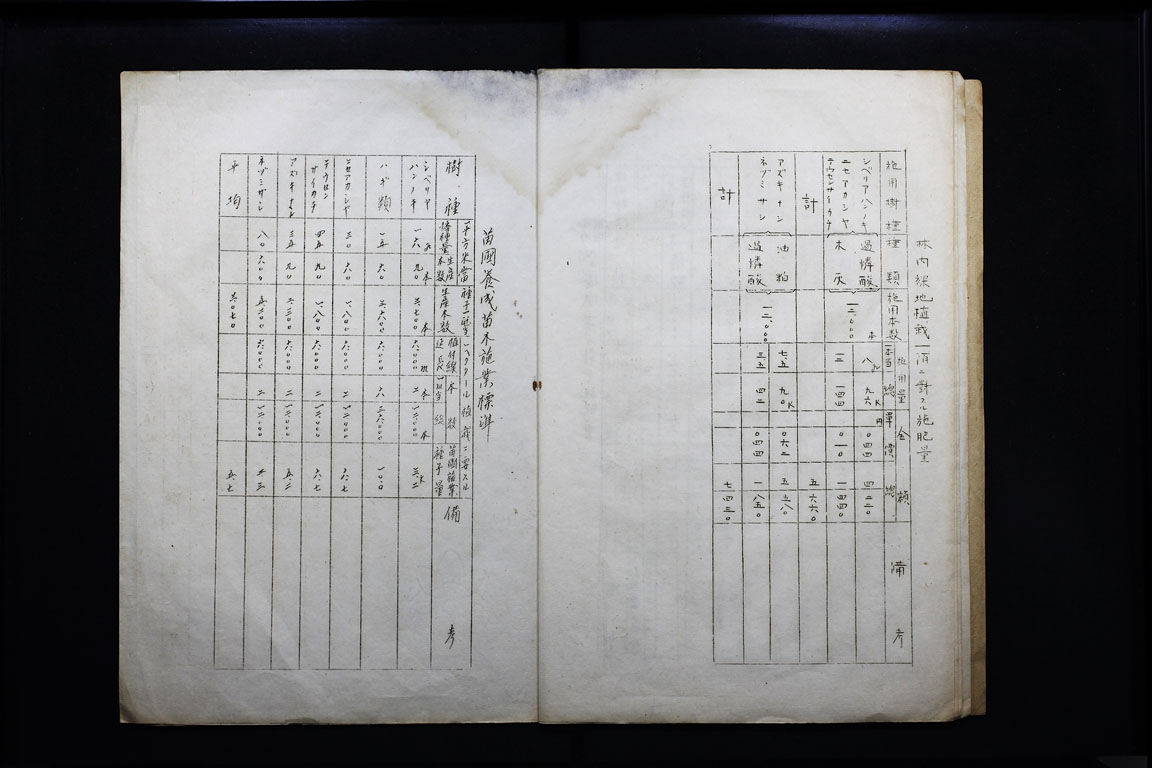 林内線地植栽一町ニ對スル施肥量
施用樹種 種類 施用本数 施用量 一本當 總量 金額 單價 總額 備考
シベリアハンノキ 過燐酸 一二、〇〇〇本 八 九六K 〇四四 四二二〇
ニセアカシヤ
テウセンサイカチ 木灰 一二 一四四 〇一〇 一四四〇
計 五六六〇
アズキナシ 油粕 一二、〇〇〇 七.五 九〇K 〇六二 五五八〇
ネヅミサシ 過燐酸 三.五 四二 〇四四 一八五〇
計 七四三〇
苗圃養成苗木施業標準
樹種 一平方米當 播種量 生産本数 種子一瓩當 生産本数 一ヘクタール植栽ニ要スル 植付線延長 本数 一米當 總 苗圃施業種子量 備考
シベリヤハンノキ 一六 九〇本 三、七〇〇本 六、〇〇〇米 二本 一二、〇〇〇本 三.二K
ハギ類 一五 六〇 二、六〇〇 六、〇〇〇 六 三六、〇〇〇 一〇.〇
ニセアカシヤ 三〇 六〇 一、八〇〇 六、〇〇〇 二 一二、〇〇〇 六.七
テウセンサイカチ 四五 九〇 一、八〇〇 六、〇〇〇 二 一二、〇〇〇 六.七
アズキナシ 三五 九〇 二、三〇〇 六、〇〇〇 二 一二、〇〇〇 五.二
ネヅミサシ 八〇 六、〇〇〇 二 一二、〇〇〇
平均 五.七